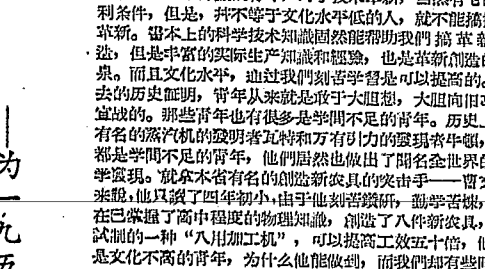 利条件，但是，并不等于文化水平低的人，就不能搞
革新。書本上的科学技术知識固然能帮助我們搞革新
造，但是丰富的实际生产知識和經驗，也是革新創造的
泉。而且文化水平，通过我們刻苦学習是可以提高的。
去的历史証明，青年从来就是敢于大胆想，大胆向旧
宣战的。那些青年也有很多是学問不足的青年。历史上
有名的蒸汽机的發明者瓦特和万有引力的發現者牛頓，
都是学問不足的青年，他們居然也做出了聞名全世界的
学發現。就拿本省有名的創造新农具的突击手——
来說，他只讀了四年初小，由于他刻苦鑽研，勤学苦練，
在已掌握了高中程度的物理知識，創造了八件新农具，
試制的一种“八用加工机”，可以提高工效五十倍，他
是文化不高的青年，为什么他能做到，而我們却有些
——为一九五